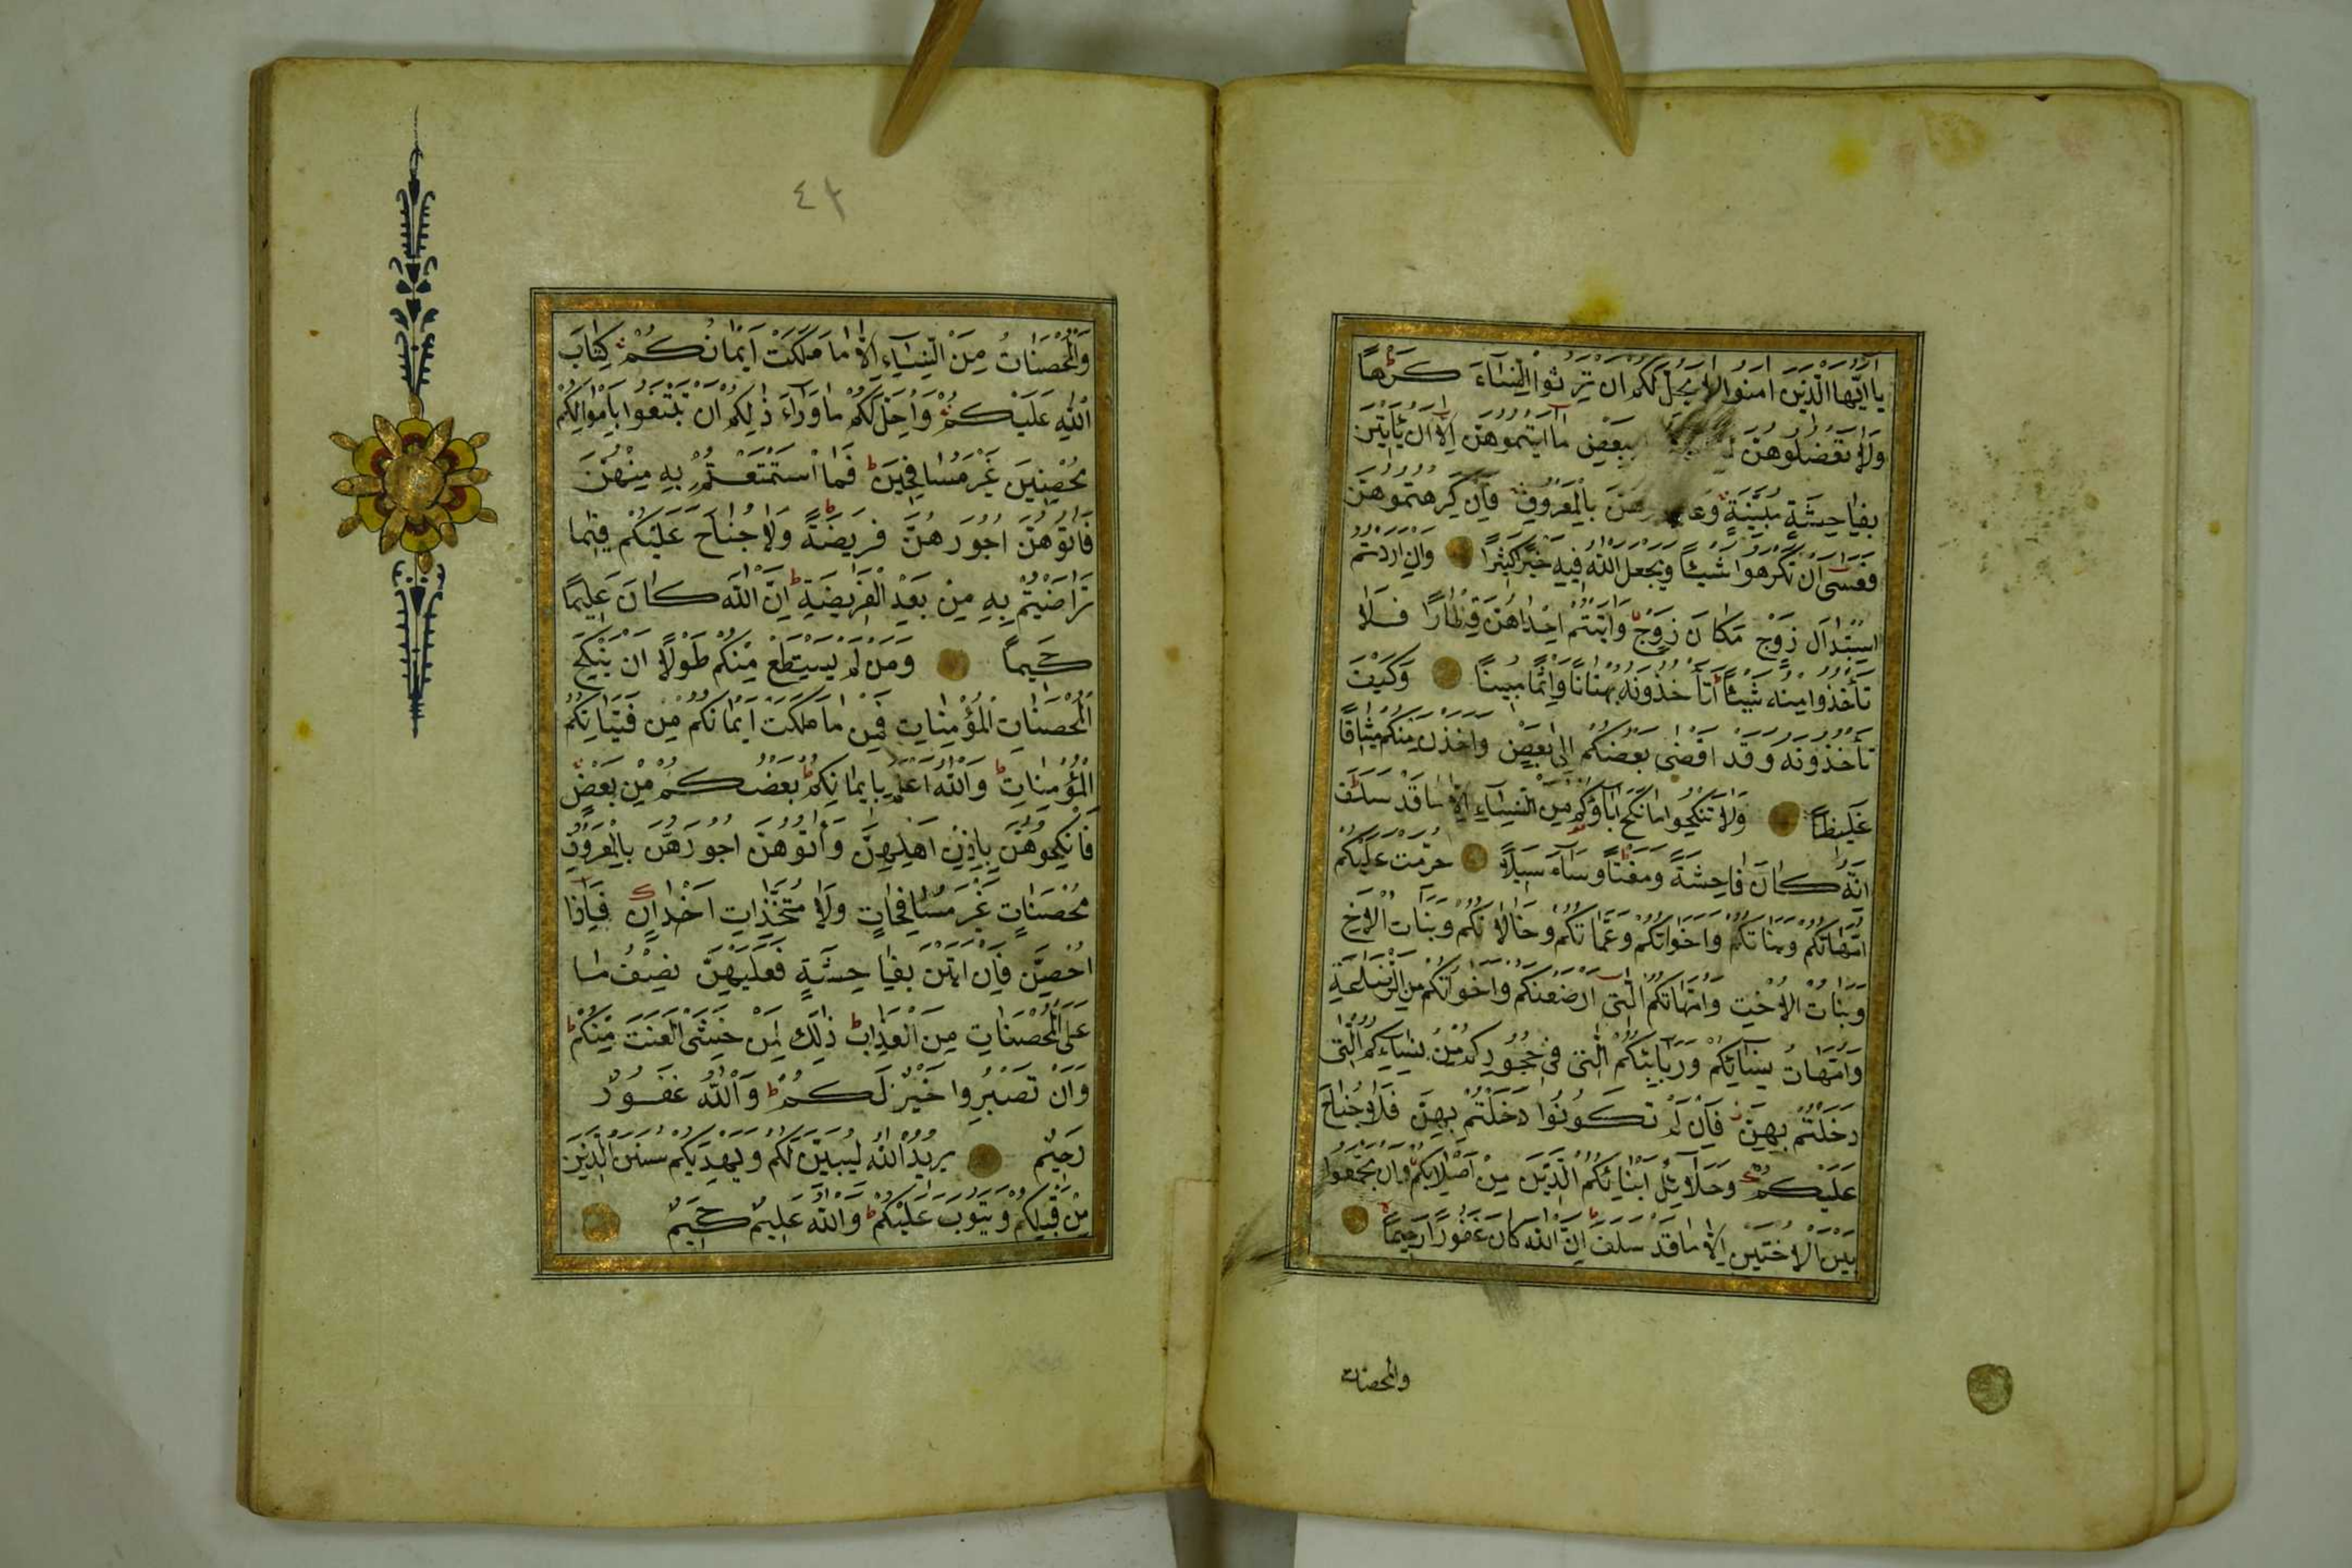 يَا اَيُّهَا الَّذِينَ امَنُوا لَا يَحِلُّ لَكُمْ اَنْ تَرِثُوا النِّسَاءَ كَرْهًا
وَلَا تَعْضُلُوهُنَّ بِبَعْضِ مَا اتَيْتُمُوهُنَّ اِلَّا اَنْ يَأْتِينَ
بِفَاحِشَةٍ مُبَيِّنَةٍ بِالْمَعْرُوفِ فَاِنْ كَرِهْتُمُوهُنَّ
فَعَسَى اَنْ تَكْرَهُوا شَيْئًا وَيَجْعَلَ اللّٰهُ فِيهِ خَيْرًا كَثِيرًا وَاِنْ اَرَدْتُمُ
اسْتِبْدَالَ زَوْجٍ مَكَانَ زَوْجٍ وَاتَيْتُمْ اِحْدَاهُنَّ قِنْطَارًا فَلَا
تَأْخُذُوا مِنْهُ شَيْئًا اَتَأْخُذُونَهُ بُهْتَانًا وَاِثْمًا مُبِينًا وَكَيْفَ
تَأْخُذُونَهُ وَقَدْ اَفْضَى بَعْضُكُمْ اِلَى بَعْضٍ وَاَخَذْنَ مِنْكُمْ مِيثَاقًا
غَلِيظًا وَلَا تَنْكِحُوا مَا نَكَحَ ابَاؤُكُمْ مِنَ النِّسَاءِ اِلَّا مَا قَدْ سَلَفَ
اِنَّهُ كَانَ فَاحِشَةً وَمَقْتًا وَسَاءَ سَبِيلًا حُرِّمَتْ عَلَيْكُمْ
اُمَّهَاتُكُمْ وَبَنَاتُكُمْ وَاَخَوَاتُكُمْ وَعَمَّاتُكُمْ وَخَالَاتُكُمْ وَبَنَاتُ الْاَخِ
وَبَنَاتُ الْاُخْتِ وَاُمَّهَاتُكُمُ الّٰتِى اَرْضَعْنَكُمْ وَاَخَوَاتُكُمْ مِنَ الرَّضَاعَةِ
وَاُمَّهَاتُ نِسَائِكُمْ وَرَبَائِبُكُمُ الّٰتِى فِى حُجُورِكُمْ مِنْ نِسَائِكُمُ الّٰتِى
دَخَلْتُمْ بِهِنَّ فَاِنْ لَمْ تَكُونُوا دَخَلْتُمْ بِهِنَّ فَلَا جُنَاحَ
عَلَيْكُمْ وَحَلَائِلُ اَبْنَائِكُمُ الَّذِينَ مِنْ اَصْلَابِكُمْ وَاَنْ تَجْمَعُوا
بَيْنَ الْاُخْتَيْنِ اِلَّا مَا قَدْ سَلَفَ اِنَّ اللّٰهَ كَانَ غَفُورًا رَحِيمًا
والمحصنات
٤٢
وَالْمُحْصَنَاتُ مِنَ النِّسَاءِ اِلَّا مَا مَلَكَتْ اَيْمَانُكُمْ كِتَابَ
اللّٰهِ عَلَيْكُمْ وَاُحِلَّ لَكُمْ مَا وَرَاءَ ذٰلِكُمْ اَنْ تَبْتَغُوا بِاَمْوَالِكُمْ
مُحْصِنِينَ غَيْرَ مُسَافِحِينَ فَمَا اسْتَمْتَعْتُمْ بِهِ مِنْهُنَّ
فَاتُوهُنَّ اُجُورَهُنَّ فَرِيضَةً وَلَا جُنَاحَ عَلَيْكُمْ فِيمَا
تَرَاضَيْتُمْ بِهِ مِنْ بَعْدِ الْفَرِيضَةِ اِنَّ اللّٰهَ كَانَ عَلِيمًا
حَكِيمًا وَمَنْ لَمْ يَسْتَطِعْ مِنْكُمْ طَوْلًا اَنْ يَنْكِحَ
الْمُحْصَنَاتِ الْمُؤْمِنَاتِ فَمِنْ مَا مَلَكَتْ اَيْمَانُكُمْ مِنْ فَتَيَاتِكُمُ
الْمُؤْمِنَاتِ وَاللّٰهُ اَعْلَمُ بِاِيمَانِكُمْ بَعْضُكُمْ مِنْ بَعْضٍ
فَانْكِحُوهُنَّ بِاِذْنِ اَهْلِهِنَّ وَاتُوهُنَّ اُجُورَهُنَّ بِالْمَعْرُوفِ
مُحْصَنَاتٍ غَيْرَ مُسَافِحَاتٍ وَلَا مُتَّخِذَاتِ اَخْدَانٍ فَاِذَا
اُحْصِنَّ فَاِنْ اَتَيْنَ بِفَاحِشَةٍ فَعَلَيْهِنَّ نِصْفُ مَا
عَلَى الْمُحْصَنَاتِ مِنَ الْعَذَابِ ذٰلِكَ لِمَنْ خَشِىَ الْعَنَتَ مِنْكُمْ
وَاَنْ تَصْبِرُوا خَيْرٌ لَكُمْ وَاللّٰهُ غَفُورٌ
رَحِيمٌ يُرِيدُ اللّٰهُ لِيُبَيِّنَ لَكُمْ وَيَهْدِيَكُمْ سُنَنَ الَّذِينَ
مِنْ قَبْلِكُمْ وَيَتُوبَ عَلَيْكُمْ وَاللّٰهُ عَلِيمٌ حَكِيمٌ